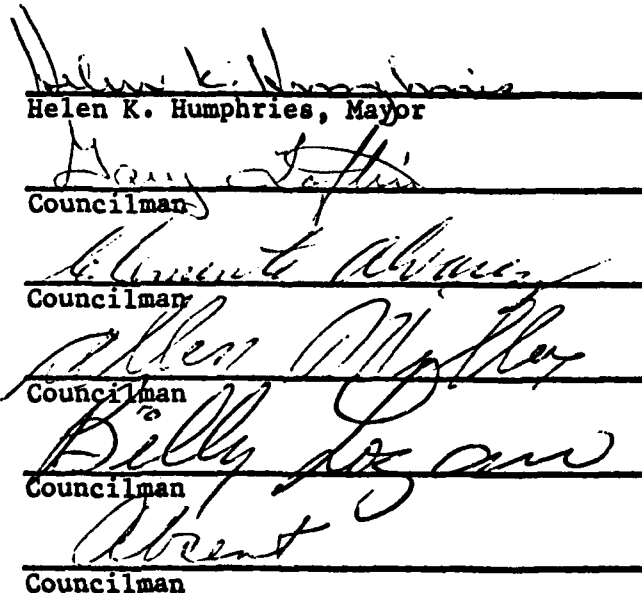 Helen K. Humphries
Helen K. Humphries, Mayor
Gary
Councilman
Clemente Alvarez
Councilman
Allen
Councilman
Billy Logan
Councilman
Absent
Councilman